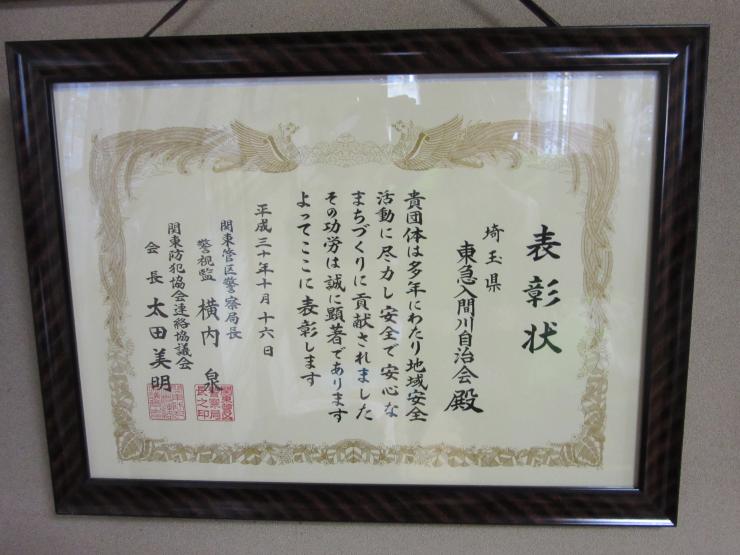 表彰状
埼玉県
東急入間川自治会殿
貴団体は多年にわたり地域安全
活動に尽力し安全で安心な
まちづくりに貢献されました
その功労は誠に顕著であります
よってここに表彰します
平成三十年十月十六日
関東管区警察局長
警視監 横内泉
関東管区
警察局
長之印
関東防犯協会連絡協議会
会長 太田美明